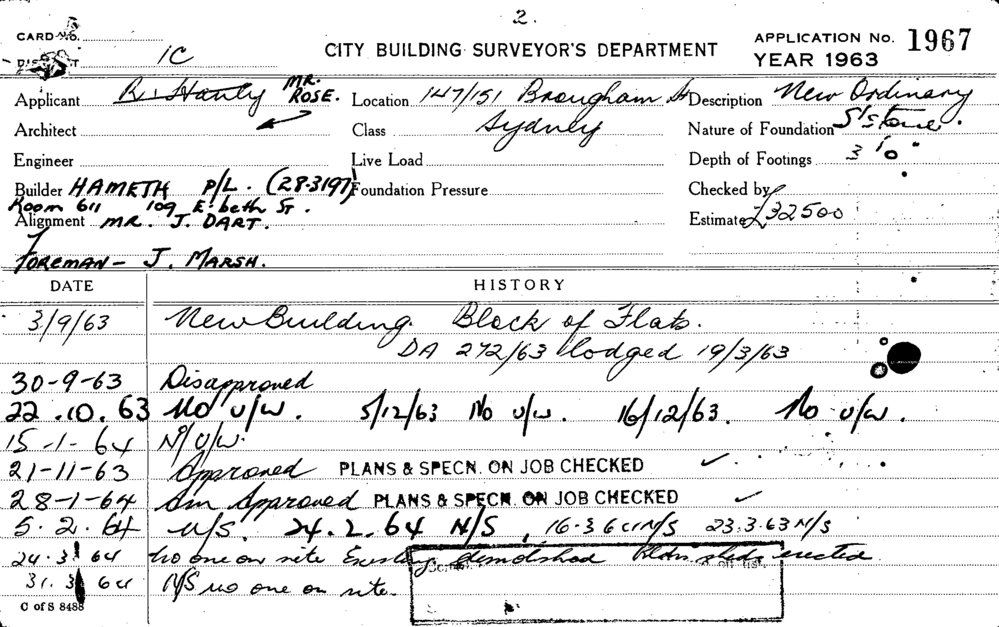 2.
CARD No.
CITY BUILDING SURVEYOR'S DEPARTMENT
APPLICATION No. 1967
YEAR 1963
1C
Applicant R. Hanly MR. ROSE. Location 147/151 Brougham St Description New Ordinary
Architect Class Sydney Nature of Foundation S'stone.
Engineer Live Load Depth of Footings 3'0"
Builder HAMETH P/L. (28.3197) Foundation Pressure Checked by
Room 611 109 E'beth St.
Alignment MR. J. DART. Estimate £32500
FOREMAN - J. MARSH.
DATE HISTORY
3/9/63 New Building. Block of Flats.
DA 272/63 lodged 19/3/63
30-9-63 Disapproved
22.10.63 No u/w. 5/12/63 No u/w. 16/12/63. No u/w.
15-1-64 N/U/W.
21-11-63 Approved PLANS & SPECN. ON JOB CHECKED ✓
28-1-64 Am Approved PLANS & SPECN. ON JOB CHECKED ✓
5.2.64 N/S. 24.2.64 N/S, 16.3.64 N/S 23.3.63 N/S
24.3.64 No one on site demolished erected.
31.3.64 N/S no one on site.
C of S 8488